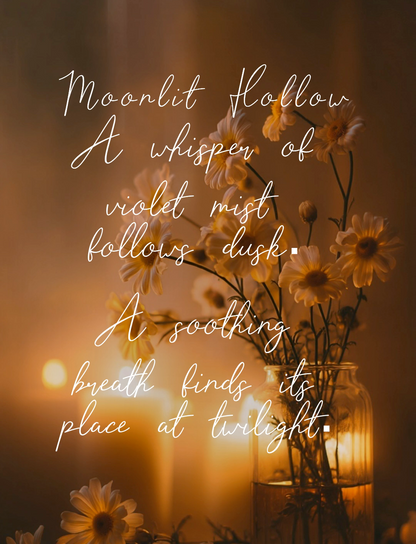 Moonlit Hollow
A whisper of
violet mist
follows dusk.
A soothing
breath finds its
place at twilight.